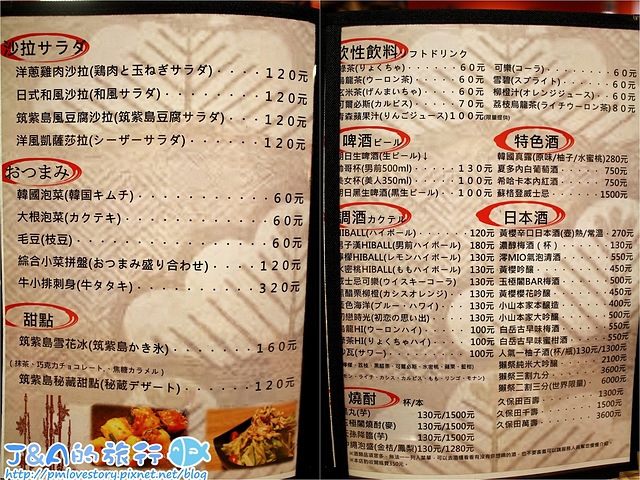 沙拉サラダ
洋蔥雞肉沙拉(鶏肉と玉ねぎサラダ)・・・・120元
日式和風沙拉(和風サラダ)・・・・・・・120元
筑紫島風豆腐沙拉(筑紫島豆腐サラダ)・・・120元
洋風凱薩莎拉(シーザーサラダ)・・・・・120元
おつまみ
韓國泡菜(韓国キムチ)・・・・・・・・60元
大根泡菜(カクテキ)・・・・・・・・・60元
毛豆(枝豆)・・・・・・・・・・・・60元
綜合小菜拼盤(おつまみ盛り合わせ)・・・120元
牛小排刺身(牛タタキ)・・・・・・・・320元
甜點
筑紫島雪花冰(筑紫島かき氷)・・・・・160元
(抹茶・巧克力チョコレート・焦糖カラメル)
筑紫島秘藏甜點(秘蔵デザート)・・・・・120元
J&A的旅行
http://pmlovestory.pixnet.net/blog
軟性飲料 ソフトドリンク
綠茶(りょくちゃ)・・・・・60元
烏龍茶(ウーロン茶)・・・・60元
玄米茶(げんまいちゃ)・・・60元
可爾必斯(カルピス)・・・・70元
青森蘋果汁(りんごジュース)・・100元(限量提供)
可樂(コーラ)・・・・・・・60元
雪碧(スプライト)・・・・・60元
柳橙汁(オレンジジュース)・・・60元
荔枝烏龍茶(ライチウーロン茶)80元
啤酒ビール
朝日生啤酒(生ビール)↓
帥哥杯(男前500ml)・・・・・130元
美女杯(美人350ml)・・・・・100元
朝日黑生啤酒(黒生ビール)・・・100元
特色酒
韓國真露(原味/柚子/水蜜桃)280元
夏多內白葡萄酒 750元
希哈卡本內紅酒 750元
蘇格登威士忌 1500元
調酒カクテル
HIBALL(ハイボール)・・・・・120元
男子漢HIBALL(男前ハイボール)180元
檸檬HIBALL(レモンハイボール)130元
水蜜桃HIBALL(ももハイボール)130元
威士忌可樂(ウイスキーコーラ)130元
黑醋栗柳橙(カシスオレンジ)・130元
藍色海洋(ブルー・ハワイ)・・130元
初戀時光(初恋の思い出)・・・130元
烏龍HI(ウーロンハイ)・・・・100元
綠茶HI(りょくちゃハイ)・・・100元
沙瓦(サワー)・・・・・・・100元
日本酒
黃櫻辛口日本酒(壺)熱/常溫・270元
濃醇梅酒(杯)・・・・・・130元
澪MIO氣泡清酒・・・・・・550元
黃櫻吟釀・・・・・・・・450元
玉極閣BAR梅酒・・・・・・500元
黃櫻櫻花吟釀・・・・・・400元
小山本家本釀造・・・・・400元
小山本家大吟釀・・・・・500元
白岳古早味梅酒・・・・・550元
白岳古早味蜜柑酒・・・・550元
人氣一柚子酒(杯/瓶)130元/1300元
獺祭純米大吟釀・・・・・2100元
獺祭三割九分・・・・・・3600元
獺祭二割三分(世界限量) 6000元
久保田百壽・・・・・・・1300元
久保田千壽・・・・・・・1500元
久保田萬壽・・・・・・・3600元
燒酎 杯/本
丸(芋) 130元/1500元
玉極閣燒酎(麥) 130元/1500元
天孫降臨(芋) 130元/1500元
(金桔/鳳梨)130元/1280元